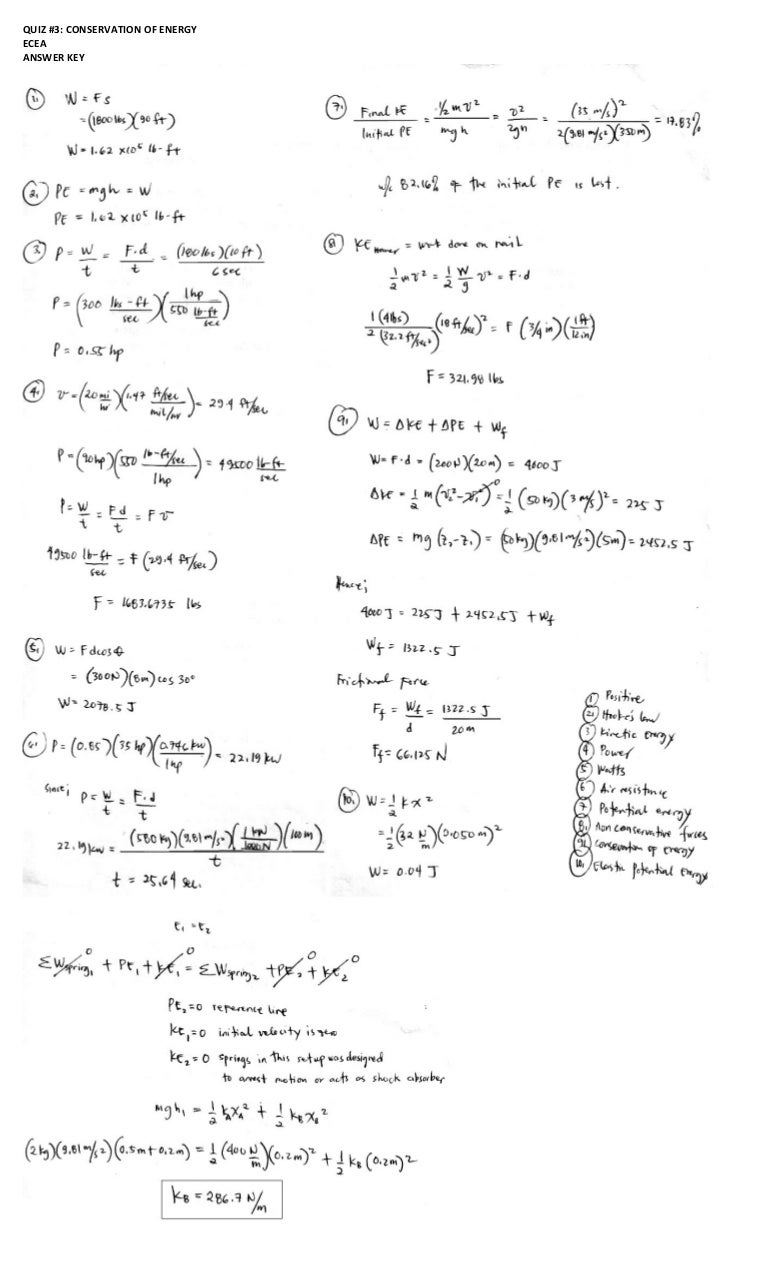 QUIZ #3: CONSERVATION OF ENERGY
ECEA
ANSWER KEY
1. W = Fs
= (1800 lbs)(90 ft)
W = 1.62 x10⁵ lb-ft
2. PE = mgh = W
PE = 1.62 x10⁵ lb-ft
3. P = W/t = F.d/t = (180 lbs)(10 ft)/6 sec
P = (300 lbs-ft/sec)(1hp/550 lb-ft/sec)
P = 0.55 hp
4. v = (20 mi/hr)(1.47 ft/sec/mil/hr) = 29.4 ft/sec
P = (90hp)(550 lb-ft/sec/1hp) = 49500 lb-ft/sec
P = W/t = Fd/t = Fv
49500 lb-ft/sec = F (29.4 ft/sec)
F = 1683.6735 lbs
5. W = Fdcosθ
= (300N)(8m) cos 30°
W = 2078.5 J
6. P = (0.85)(35 hp)(0.746 kW/1hp) = 22.19 kW
Since; P = W/t = F.d/t
22.19 kW = (580 kg)(9.81 m/s²)(1 kN/1000N)(100m)/t
t = 25.64 sec.
7. Final KE/Initial PE = ½mv²/mgh = v²/2gh = (35 m/s)²/2(9.81 m/s²)(350m) = 17.83%
∴ 82.16% of the initial PE is lost.
8. KE hammer = work done on nail
½mv² = ½ W/g v² = F.d
1(4lbs)/2(32.2 ft/sec²) (18 ft/sec)² = F (3/4 in)(1ft/12in)
F = 321.98 lbs
9. W = ΔKE + ΔPE + Wf
W = F.d = (200N)(20m) = 4000 J
ΔKE = ½ m(v₂²-v₁²)⁰ = ½ (50 kg)(3 m/s)² = 225 J
ΔPE = mg (z₂-z₁) = (50kg)(9.81 m/s²)(5m) = 2452.5 J
Hence;
4000 J = 225J + 2452.5J + Wf
Wf = 1322.5 J
Frictional Force
Ff = Wf/d = 1322.5 J/20m
Ff = 66.125 N
10. W = ½ kx²
= ½(32 N/m)(0.050m)²
W = 0.04 J
1 Positive
2. Hooke's law
3 Kinetic energy
4 Power
5 Watts
6 Air resistance
7 Potential energy
8. Non conservative forces
9. Conservation of energy
10. Elastic Potential Energy
E₁ = E₂
ΣWspring₁⁰ + PE₁ + KE₁⁰ = ΣWspring₂ + PE₂⁰ + KE₂⁰
PE₂ = 0 reference line
KE₁ = 0 initial velocity is zero
KE₂ = 0 springs in this setup was designed
to arrest motion or acts as shock absorber
mgh₁ = ½ kAxA² + ½ kBxB²
(2kg)(9.81 m/s²)(0.5m+0.2m) = ½ (400 N/m)(0.2m)² + ½ kB (0.2m)²
kB = 286.7 N/m